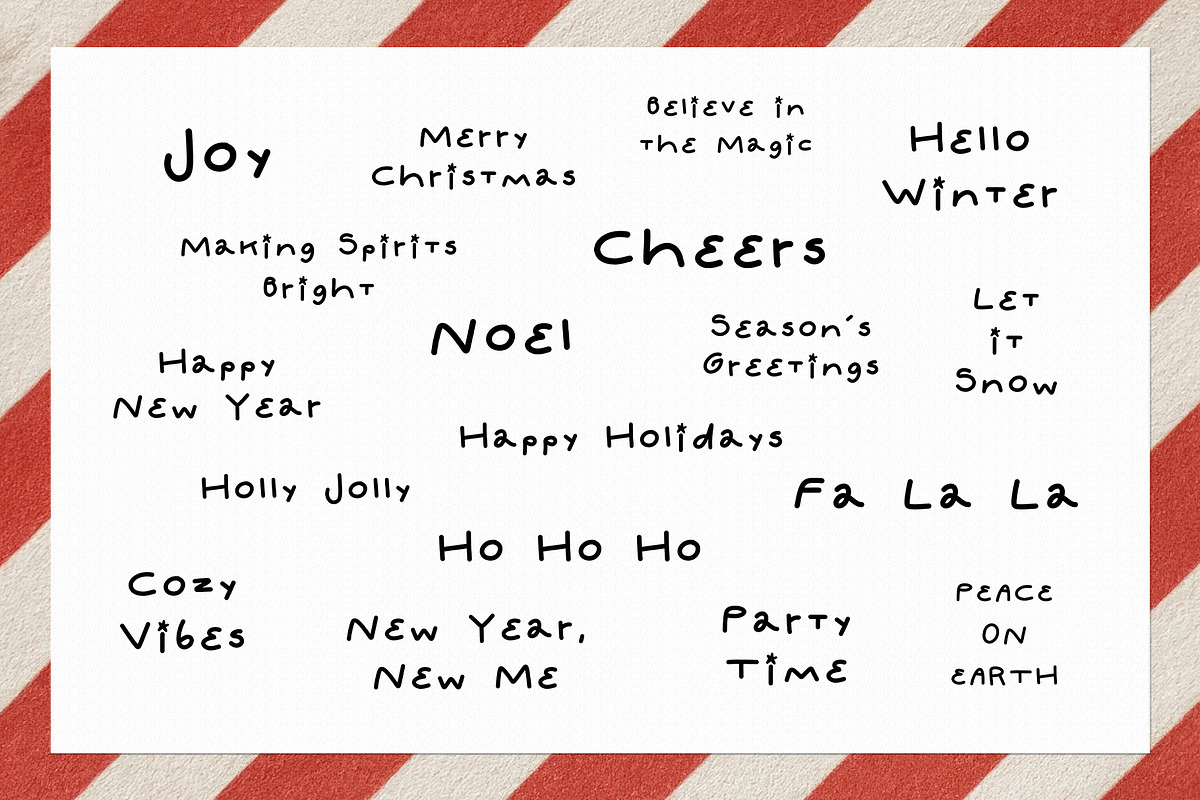 Joy
Merry
Christmas
Believe in
the Magic
Hello
Winter
Making Spirits
Bright
Cheers
Noel
Season's
Greetings
Let
it
Snow
Happy
New Year
Happy Holidays
Holly Jolly
Fa La La
Ho Ho Ho
Cozy
Vibes
New Year,
New Me
Party
Time
PEACE
ON
EARTH